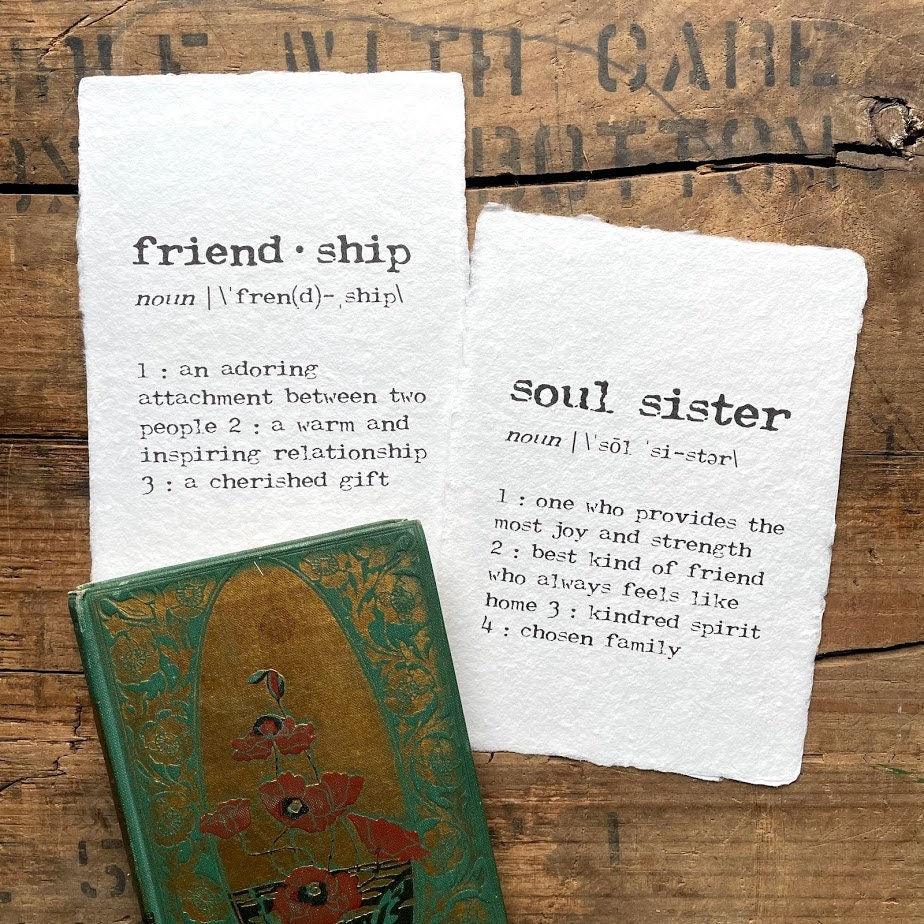 WITH CARE
BOTTOM
friend·ship
noun | \ˈfren(d)-ˌship\
1 : an adoring
attachment between two
people 2 : a warm and
inspiring relationship
3 : a cherished gift
soul sister
noun | \ˈsōl ˈsi-stər\
1 : one who provides the
most joy and strength
2 : best kind of friend
who always feels like
home 3 : kindred spirit
4 : chosen family